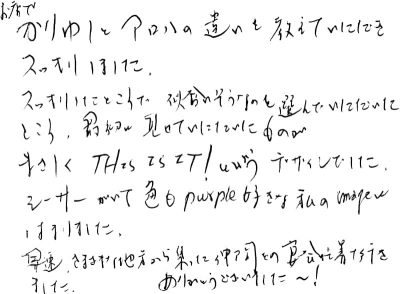 お店で
かりゆしとアロハの違いを教えていただき
スッキリしました.
スッキリしたところで 似合いそうなのを選んでいただいた
ところ、最初に見せていただいたものが
まさしく THIS IS IT! という デザインでした.
シーサーがいて 色も purple 好きな私の image に
はまりました.
早速、さまざまな地方から集った仲間との宴会に着て行き
ました. ありがとうございました〜!